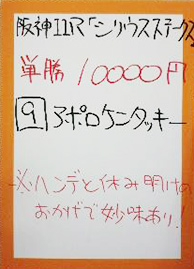 阪神11R「シリウスステークス
単勝 10000円
9 アポロケンタッキー
※ハンデと休み明けの
おかげで妙味あり!